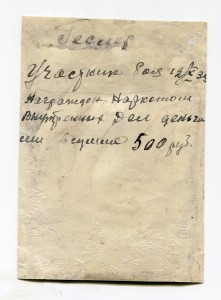 Геслер
Участник боя 12/IX 39
Награжден Наркомом
Внутренних Дел деньга
ми в сумме 500 руб.